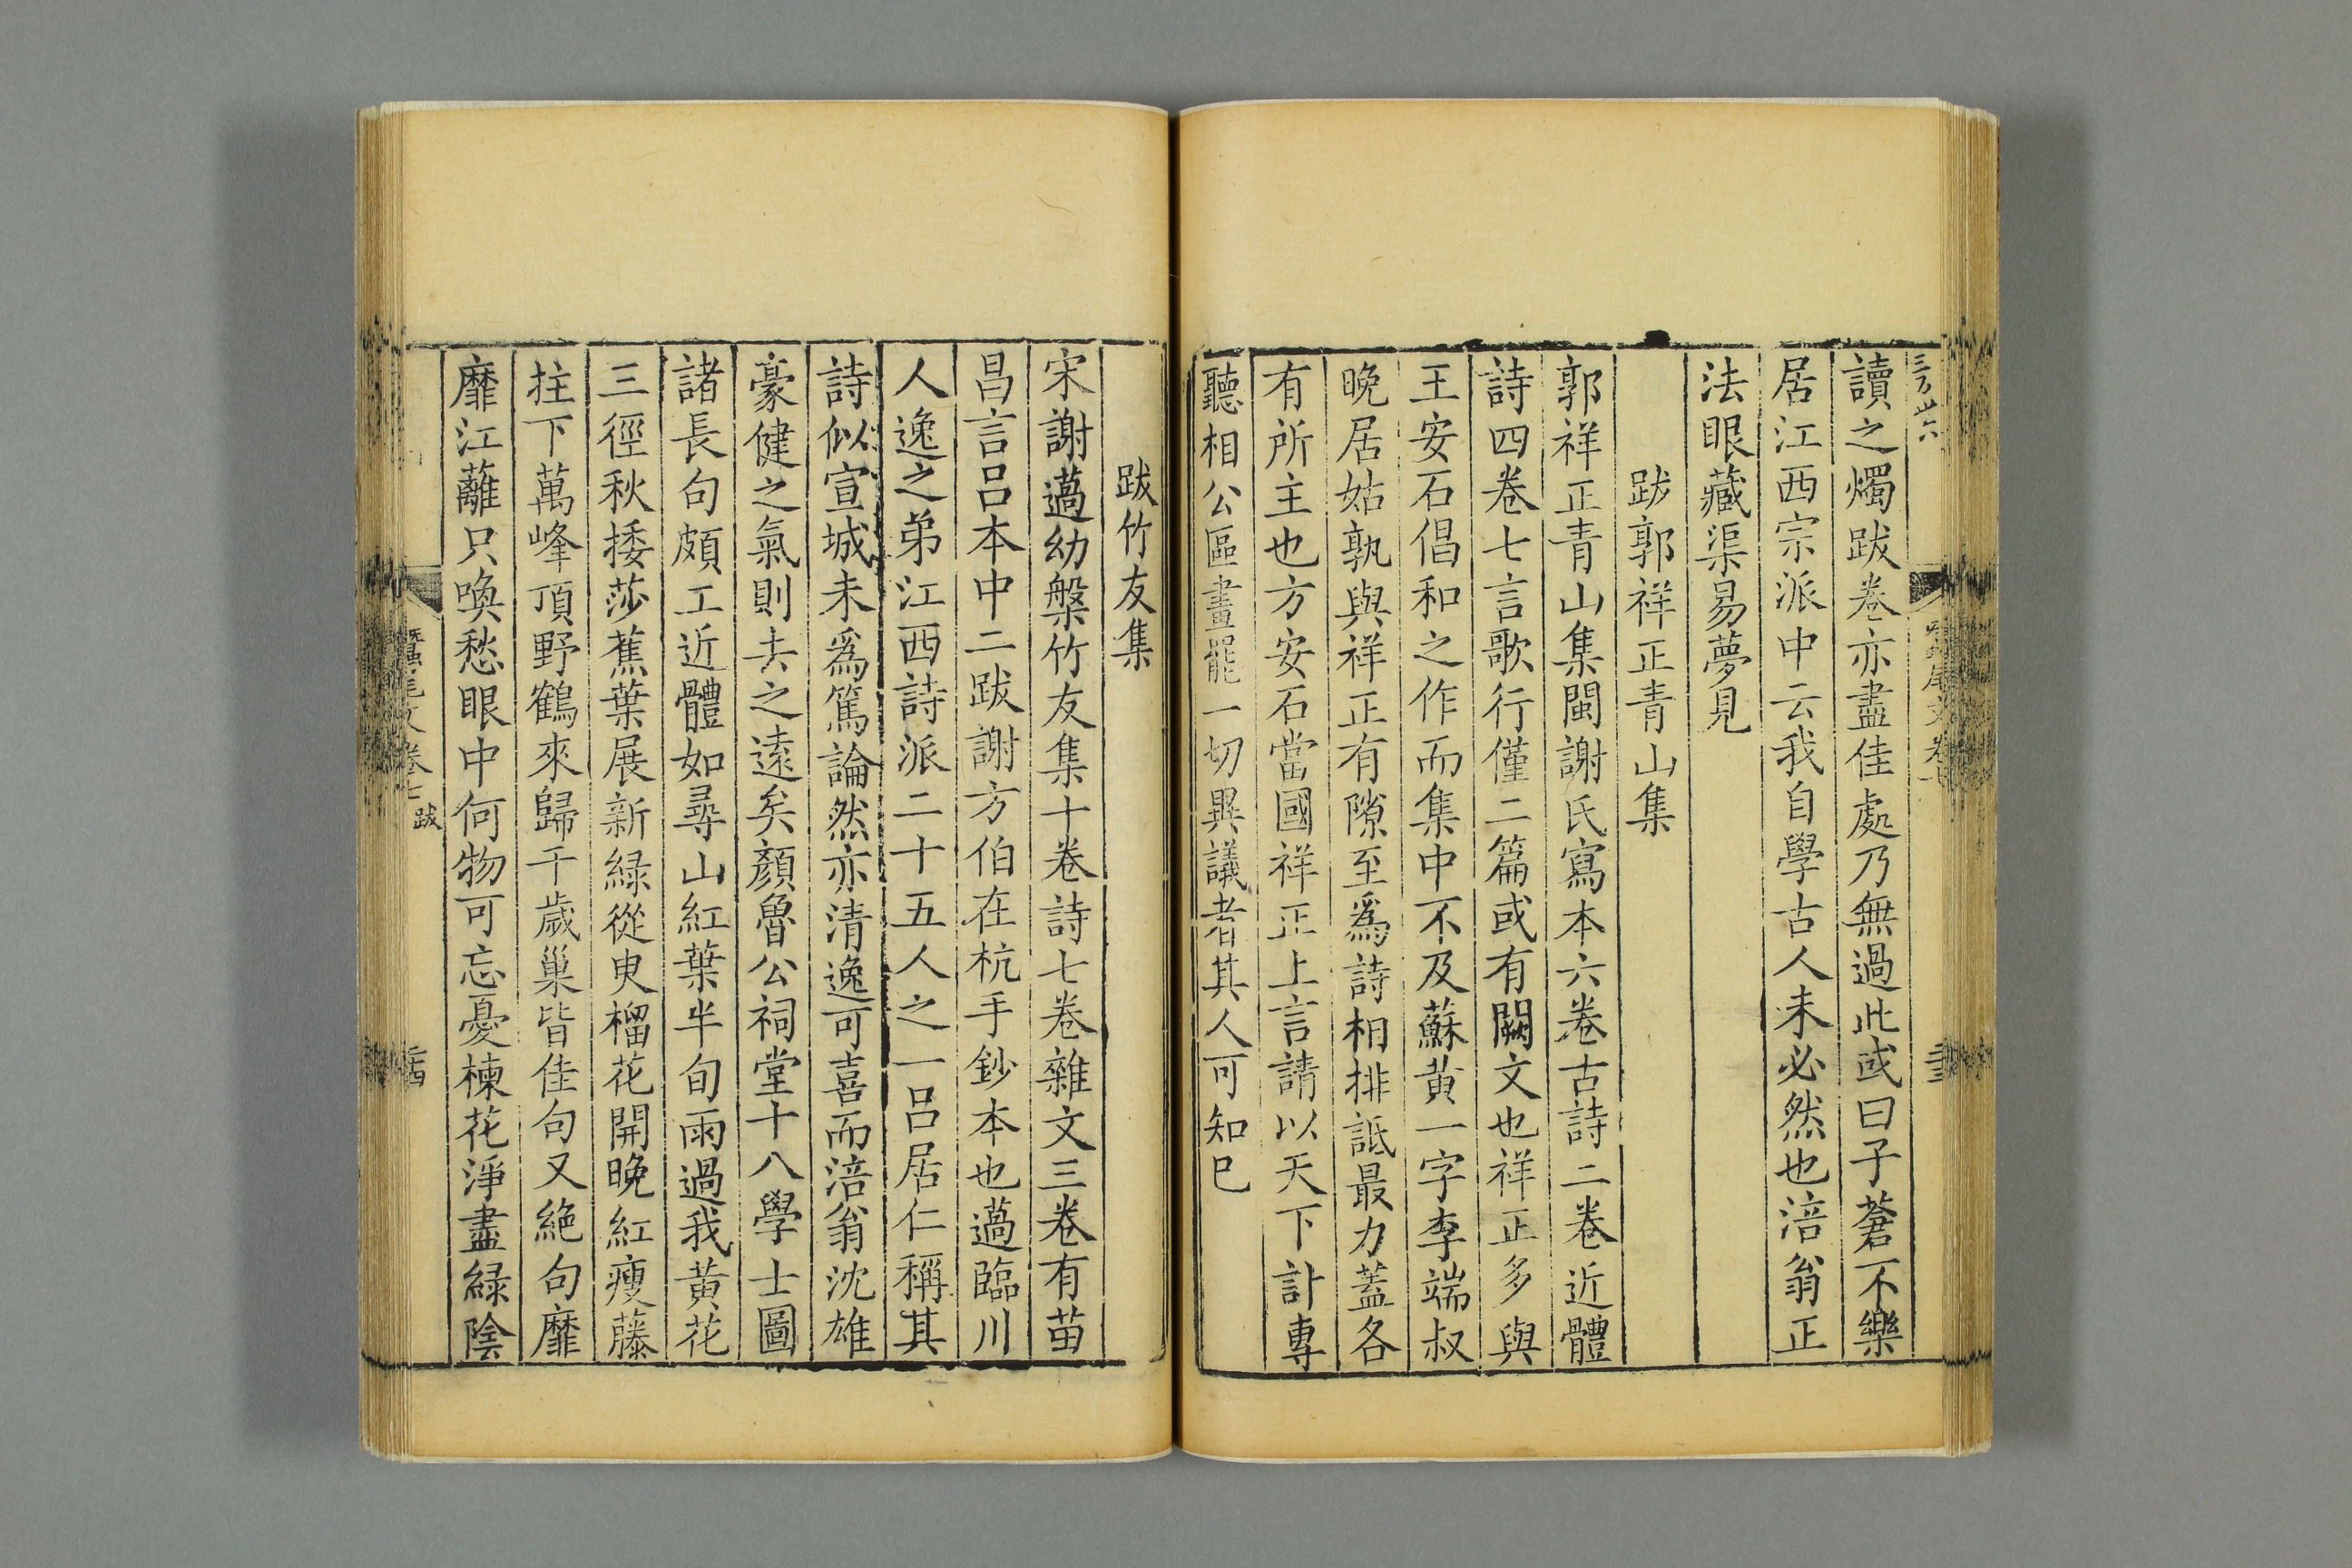 讀之燭跋卷亦盡佳處乃無過此或曰子蒼不樂
居江西宗派中云我自學古人未必然也涪翁正
法眼藏渠易夢見
跋郭祥正青山集
郭祥正青山集閩謝氏寫本六卷古詩二卷近體
詩四卷七言歌行僅二篇或有闕文也祥正多與
王安石倡和之作而集中不及蘇黃一字李端叔
晚居姑孰與祥正有隙至爲詩相排詆最力蓋各
有所主也方安石當國祥正上言請以天下計專
聽相公區畫罷一切異議者其人可知已
跋竹友集
宋謝薖幼槃竹友集十卷詩七卷雜文三卷有苗
昌言呂本中二跋謝方伯在杭手鈔本也薖臨川
人逸之弟江西詩派二十五人之一呂居仁稱其
詩似宣城未爲篤論然亦清逸可喜而涪翁沈雄
豪健之氣則去之遠矣顏魯公祠堂十八學士圖
諸長句頗工近體如尋山紅葉半旬雨過我黃花
三徑秋捼莎蕉葉展新綠從臾榴花開晚紅瘦藤
拄下萬峰頂野鶴來歸千歲巢皆佳句又絕句靡
靡江蘺只喚愁眼中何物可忘憂楝花淨盡綠陰
蠶尾文卷七 跋